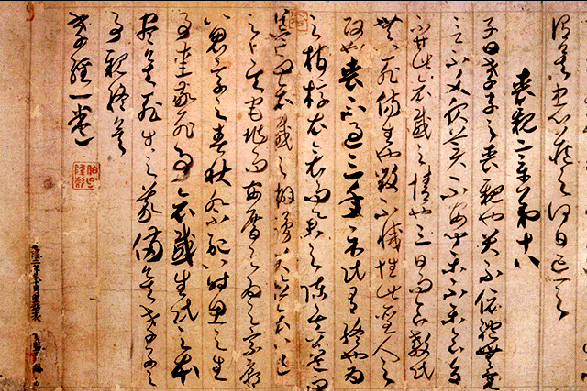 謂矣忠心藏之何日忘之
喪親章第十八
子曰孝子之喪親也哭不偯禮無容
言不文服美不安聞樂不樂食旨
不甘此哀慼之情也三日而食教民
無以死傷生毀不滅性此聖人之
政也喪不過三年示民有終也為
之棺槨衣衾而舉之陳其簠簋
而哀慼之擗踊哭泣哀以送
之卜其宅兆而安厝之為之宗廟
以鬼享之春秋祭祀以時思之生
事愛敬死事哀慼生民之本
盡矣死生之義備矣孝子之
事親終矣
孝經一卷